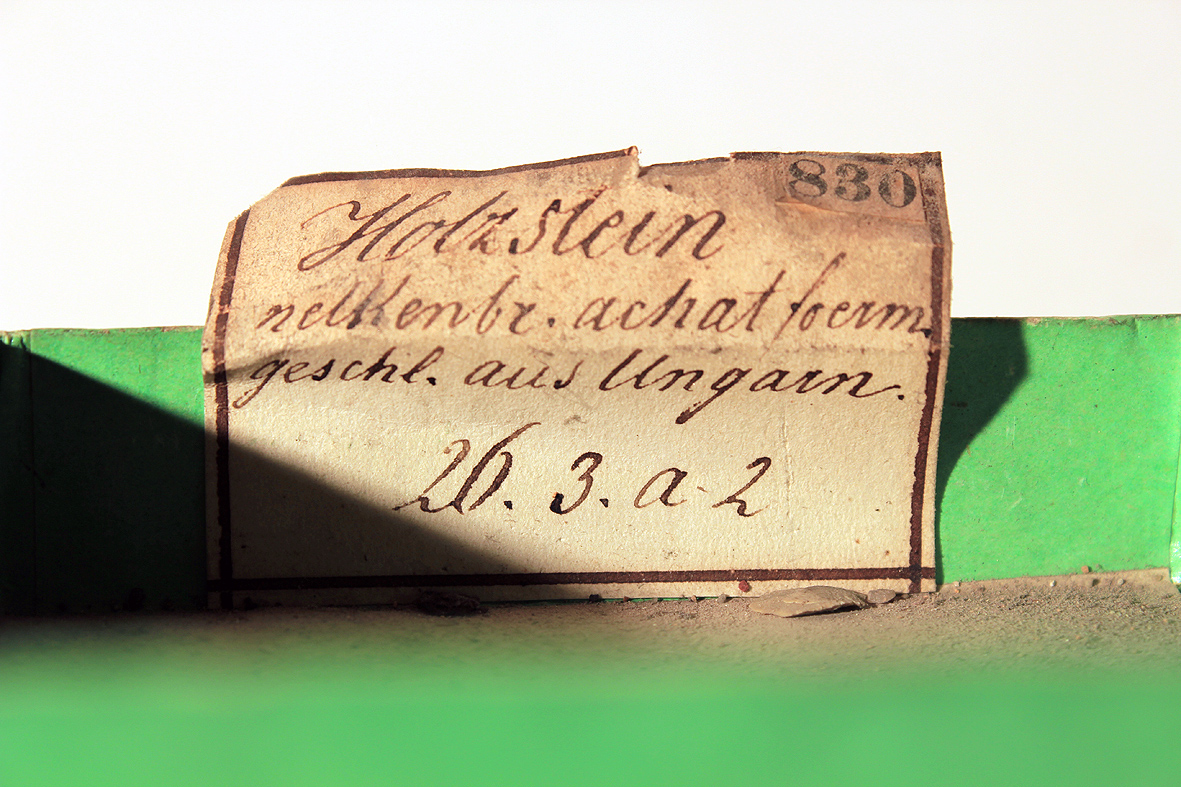 830
Holzstein
nelkenbr. achat foerm.
geschl. aus Ungarn.
26. 3. a 2